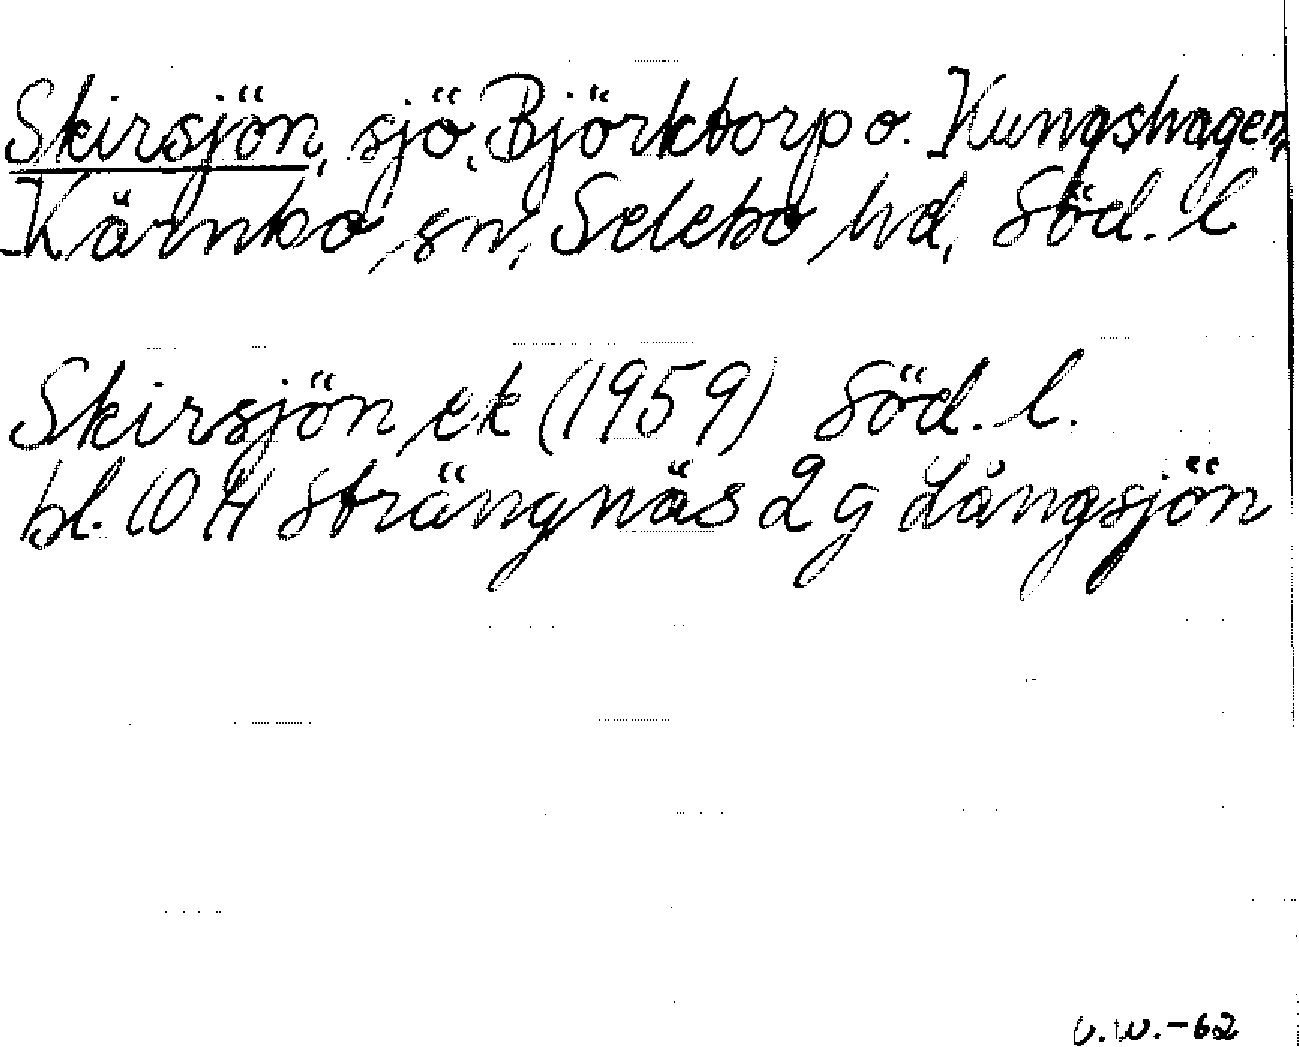 Skirsjön, sjö, Björktorp o. Kungshagen,
Kärnbo sn, Selebo hd, Söd. l
Skirsjön ek (1959) Söd. l.
bl. 10 H Strängnäs 2 g Långsjön
v.w.-62